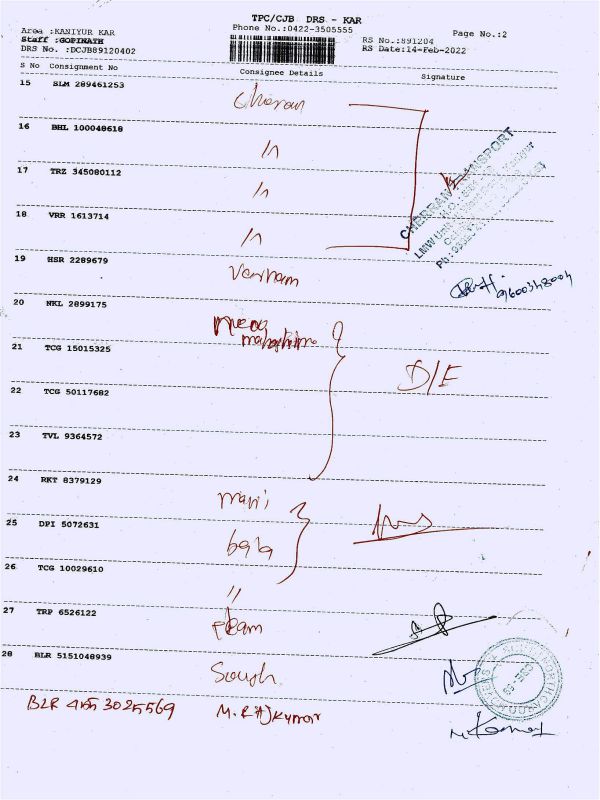 TPC/CJB DRS - KAR
Area :KANIYUR KAR
Phone No.:0422-3505555
RS No.:891204
Page No.:2
Staff :GOPINATH
RS Date:14-Feb-2022
DRS No. :DCJB89120402
S No Consignment No Consignee Details Signature
15 SLM 289461253 Charan
16 BHL 100048618 "
17 TRZ 345080112 "
18 VRR 1613714 "
CHERRAN TRANSPORT
19 HSR 2289679
9600348004
20 NKL 2899175
21 TCG 15015325
D/E
22 TCG 50117682
23 TVL 9364572
24 RKT 8379129 mani
25 DPI 5072631 bala
26 TCG 10029610 "
27 TRP 6526122
28 BLR 5151048939
BLR 455 3025569 M. RAJKUMAR